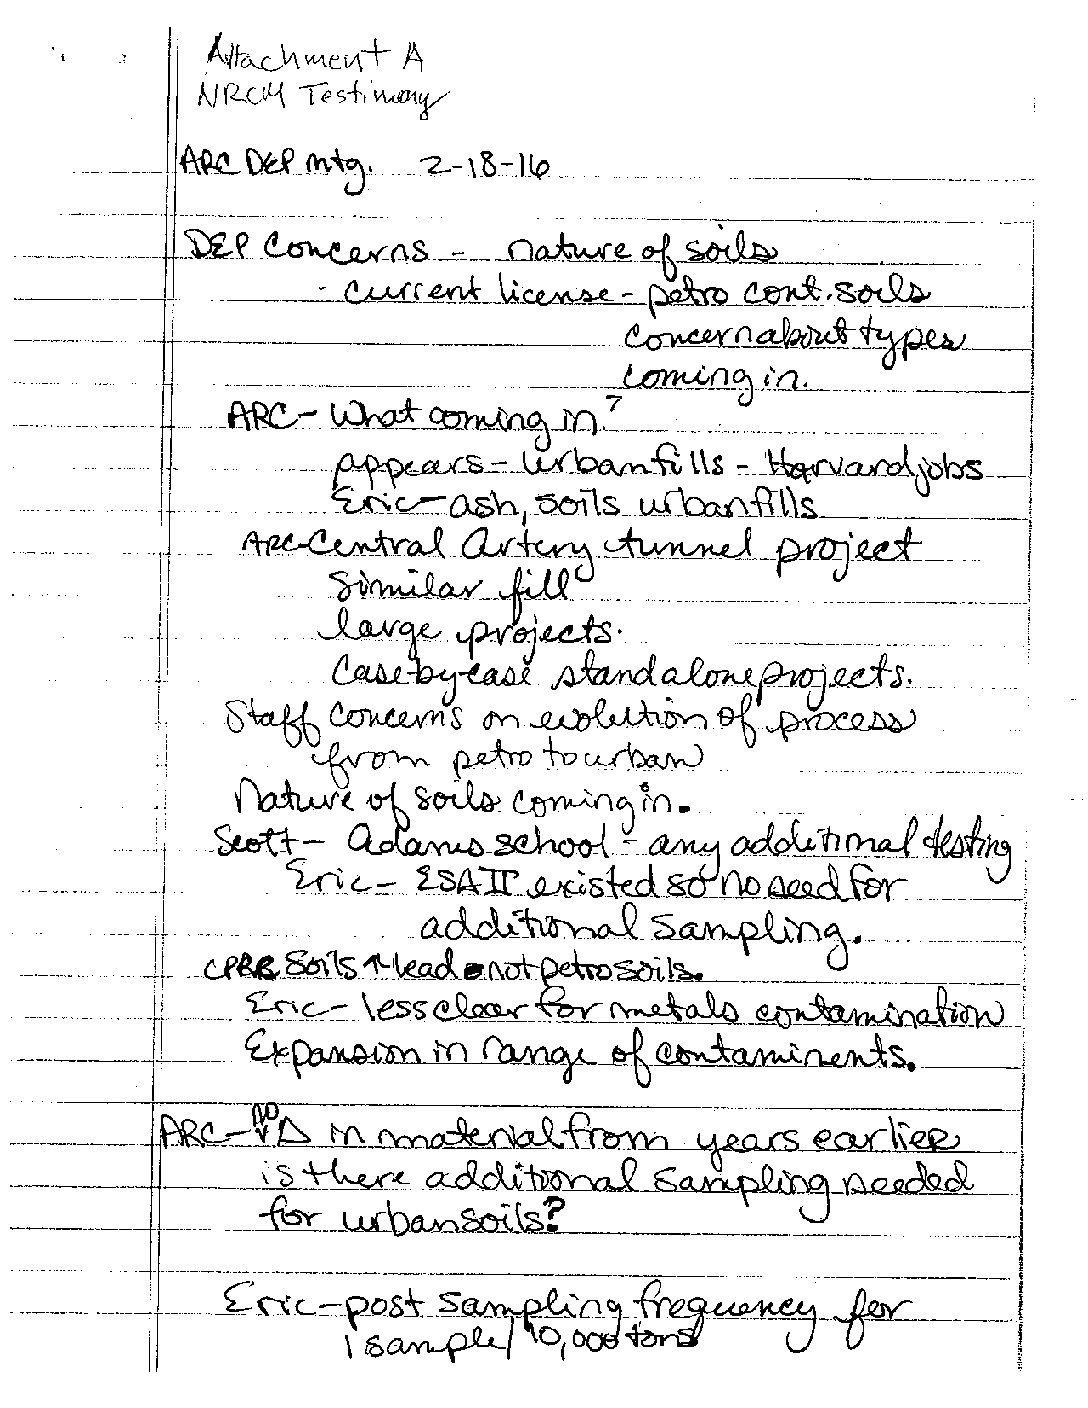 Attachment A
NRCM Testimony
ARC DEP mtg. 2-18-16
DEP Concerns - nature of soils
- current license - petro cont. soils
concern about types
coming in.
ARC - What coming in?
appears - urban fills - Harvard jobs
Eric - ash, soils urban fills
ARC - Central Artery tunnel project
similar fill
large projects.
Case-by-case standalone projects.
Staff concerns on evolution of process
from petro to urban
Nature of soils coming in.
Scott - Adams school - any additional testing
Eric - ESA II existed so no need for
additional sampling.
Soils ↑ lead not petro soils.
Eric - less clear for metals contamination
Expansion in range of contaminents.
ARC - no Δ in material from years earlier
is there additional sampling needed
for urban soils?
Eric - post sampling frequency for
1 sample/10,000 tons